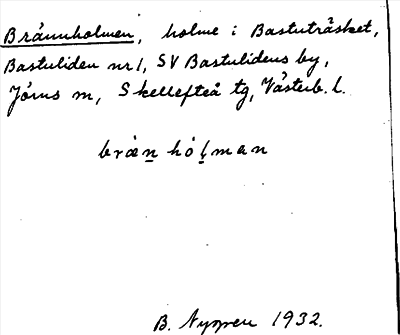 Brännholmen, holme i Bastuträsket,
Bastuliden nr 1, SV Bastulidens by,
Jörns sn, Skellefteå tg, Västerb. l.
bræn hólman
B. Nygren 1932.